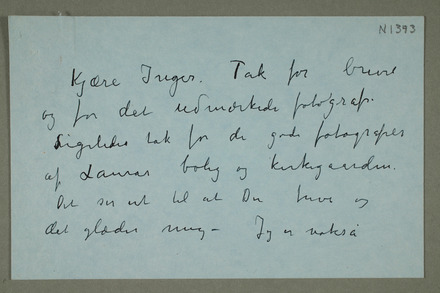 N1393
Kjære Inger. Tak for brevet
og for det udmærkede fotograf.
Ligeledes tak for de gode fotografier
af Lauras bolig og kirkegaarden.
Det ser ut til at Du leve og
det glæder mig – Jeg er også